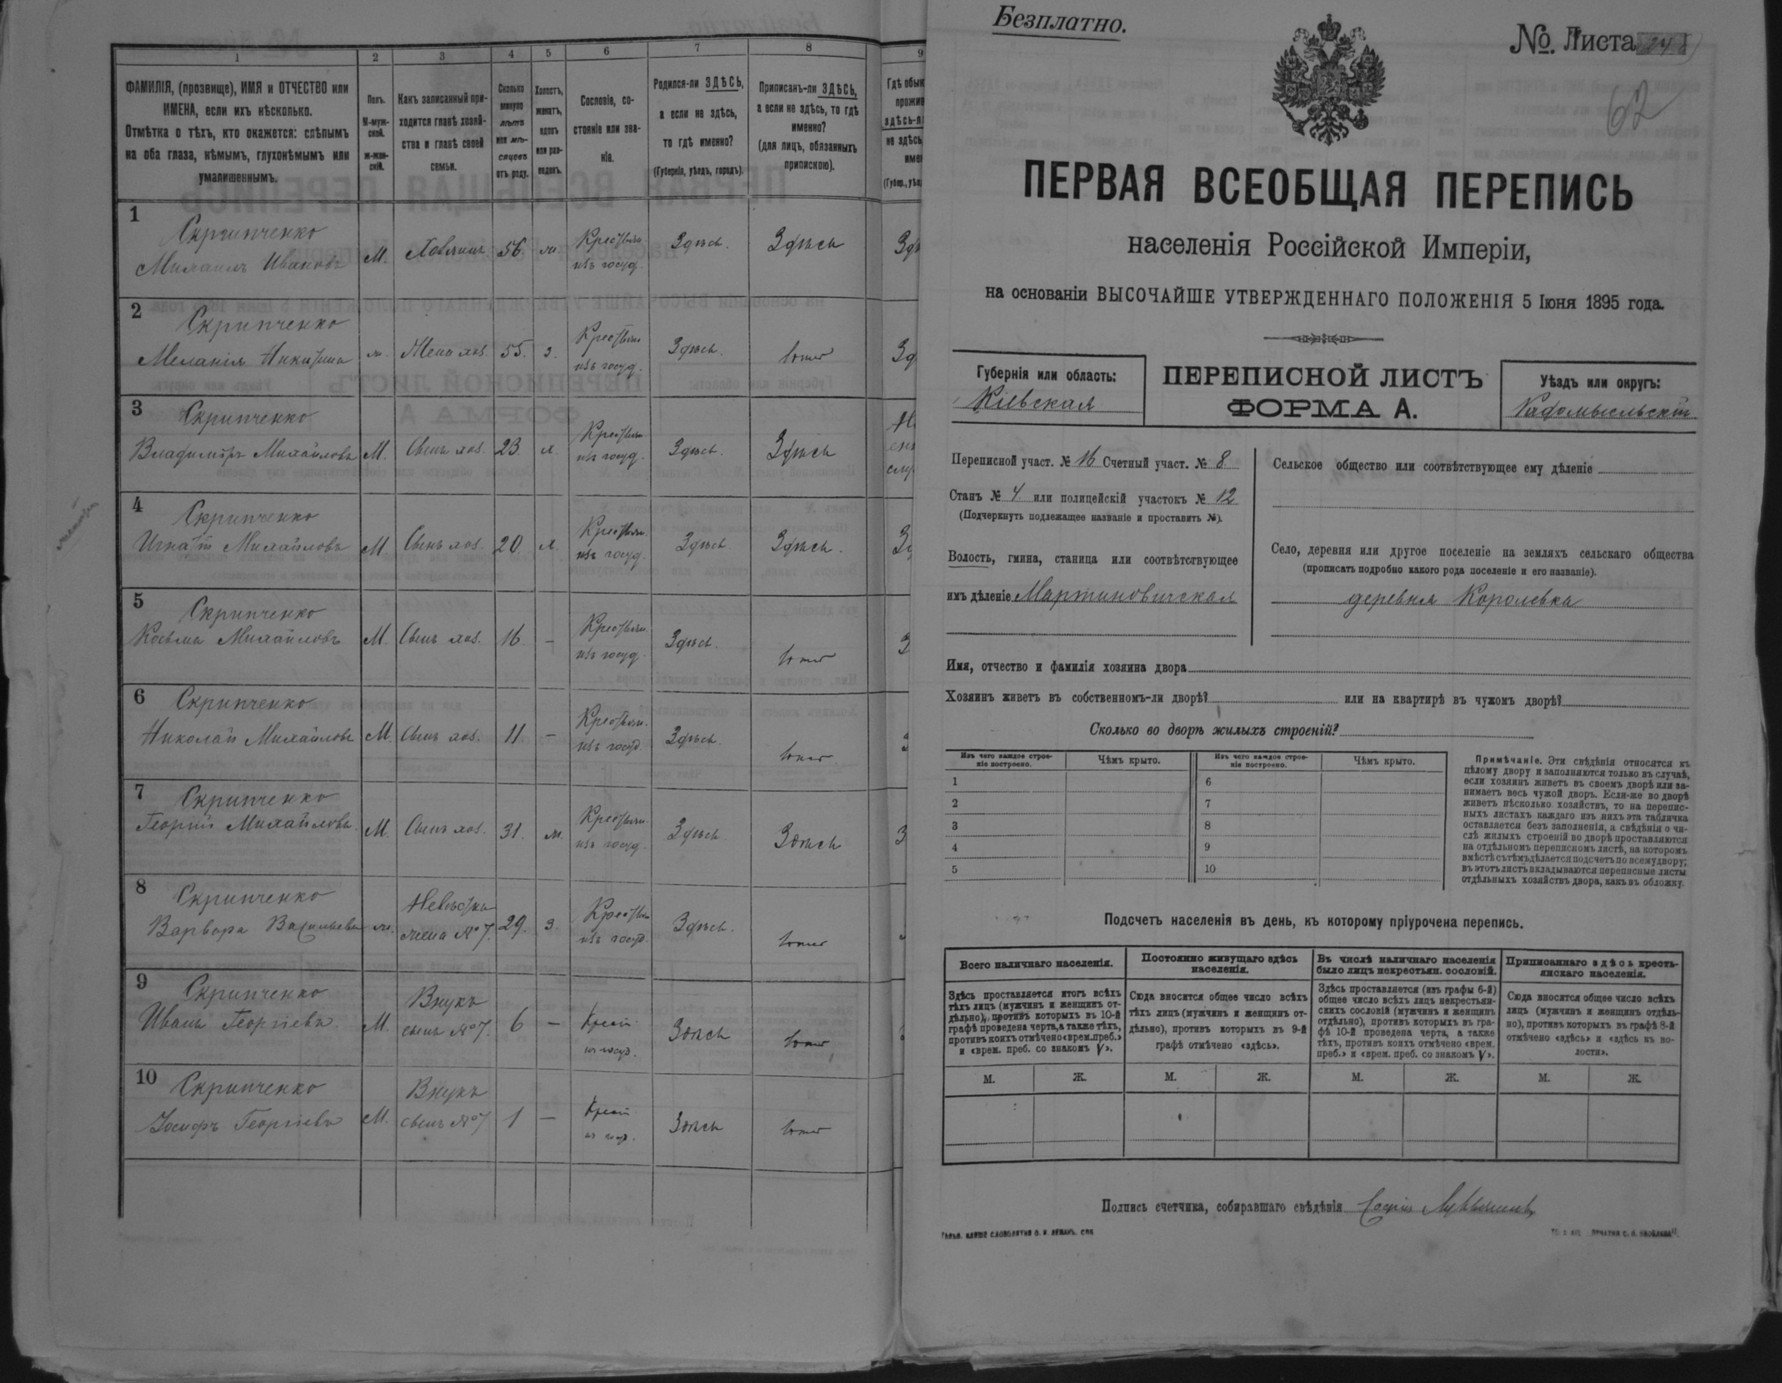 1
2
3
4
5
6
7
8
9
ФАМИЛІЯ, (прозвище), ИМЯ и ОТЧЕСТВО или
ИМЕНА, если ихъ нѣсколько.
Отмѣтка о тѣхъ, кто окажется: слѣпымъ
на оба глаза, нѣмымъ, глухонѣмымъ или
умалишеннымъ.
Полъ.
М-муж-
ской.
Ж-жен-
скій.
Какъ записанный при-
ходится главѣ хозяй-
ства и главѣ своей
семьи.
Сколько
минуло
лѣтъ
или мѣ-
сяцевъ
отъ роду.
Холостъ,
женатъ,
вдовъ
или раз-
веденъ.
Сословіе, со-
стояніе или зва-
ніе.
Родился-ли ЗДѢСЬ,
а если не здѣсь,
то гдѣ именно?
(Губернія, уѣздъ, городъ).
Приписанъ-ли ЗДѢСЬ,
а если не здѣсь, то гдѣ
именно?
(для лицъ, обязанныхъ
припискою).
Гдѣ обык
прожив
здѣсь-л
не здѣсь
имен
(Губер., уѣзд
1
Скрипченко
Михаилъ Ивановъ
М.
Хозяинъ
56
ж.
Крестьян.
изъ госуд.
Здѣсь.
Здѣсь
2
Скрипченко
Меланія Никитина
ж.
Жена хоз.
55.
з.
Крестьян.
изъ госуд.
Здѣсь.
тоже
3
Скрипченко
Владиміръ Михайловъ
М.
Сынъ хоз.
23
Крестьян.
изъ госуд.
Здѣсь.
Здѣсь
4
Скрипченко
Игнатій Михайловъ
М
Сынъ хоз.
20
Крестьян.
изъ госуд.
Здѣсь
Здѣсь.
5
Скрипченко
Косьма Михайловъ
М.
Сынъ хоз.
16
–
Крестьян.
изъ госуд.
Здѣсь.
тоже
6
Скрипченко
Николай Михайловъ
М.
Сынъ хоз.
11
–
Крестьян.
изъ госуд.
Здѣсь.
тоже
7
Скрипченко
Георгій Михайловъ
М.
Сынъ хоз.
31.
ж.
Крестьян.
изъ госуд.
Здѣсь
Здѣсь
8
Скрипченко
Варвара Васильева
ж.
Невѣстка
жена № 7.
29.
з.
Крестьян
изъ госуд.
Здѣсь.
тоже
9
Скрипченко
Иванъ Георгіевъ
М.
Внукъ
сынъ № 7.
6
–
Крест
из госуд.
Здѣсь
тоже
10
Скрипченко
Іосифъ Георгіевъ
М.
Внукъ
сынъ № 7
1
–
Крест
из госуд.
Здѣсь
тоже
Безплатно.
№. Листа 248
62
ПЕРВАЯ ВСЕОБЩАЯ ПЕРЕПИСЬ
населенія Россійской Имперіи,
на основаніи ВЫСОЧАЙШЕ УТВЕРЖДЕННАГО ПОЛОЖЕНІЯ 5 Іюня 1895 года.
Губернія или область:
Кіевская
ПЕРЕПИСНОЙ ЛИСТЪ
ФОРМА А.
Уѣздъ или округъ:
Радомысльскій
Переписной участ. № 16 Счетный участ. № 8.
Станъ № 4 или полицейскій участокъ № 12
(Подчеркнуть подлежащее названіе и проставить №).
Волость, гмина, станица или соотвѣтствующее
имъ дѣленіе Мартиновичская
Сельское общество или соотвѣтствующее ему дѣленіе
Село, деревня или другое поселеніе на земляхъ сельскаго общества
(прописать подробно какого рода поселеніе и его названіе).
деревня Королевка
Имя, отчество и фамилія хозяина двора
Хозяинъ живетъ въ собственномъ-ли дворѣ? или на квартирѣ въ чужомъ дворѣ?
Сколько во дворѣ жилыхъ строеній?
Изъ чего каждое строе-
ніе построено.
Чѣмъ крыто.
Изъ чего каждое строе-
ніе построено.
Чѣмъ крыто.
1
2
3
4
5
6
7
8
9
10
Примѣчаніе. Эти свѣдѣнія относятся къ
цѣлому двору и заполняются только въ случаѣ,
если хозяинъ живетъ въ своемъ дворѣ или за-
нимаетъ весь чужой дворъ. Если-же во дворѣ
живетъ нѣсколько хозяйствъ, то на перепис-
ныхъ листахъ каждаго изъ нихъ эта табличка
оставляется безъ заполненія, а свѣдѣнія о чи-
слѣ жилыхъ строеній во дворѣ проставляются
на отдѣльномъ переписномъ листѣ, на которомъ
вмѣстѣ съ тѣмъ дѣлается подсчетъ по всему двору;
въ этотъ листъ вкладываются переписные листы
отдѣльныхъ хозяйствъ двора, какъ въ обложку.
Подсчетъ населенія въ день, къ которому пріурочена перепись.
Всего наличнаго населенія.
Постоянно живущаго здѣсь
населенія.
Въ числѣ наличнаго населенія
было лицъ некрестьян. сословій.
Приписаннаго здѣсь кресть-
янскаго населенія.
Здѣсь проставляется итогъ всѣхъ
тѣхъ лицъ (мужчинъ и женщинъ от-
дѣльно), противъ которыхъ въ 10-й
графѣ проведена черта, а также тѣхъ,
противъ коихъ отмѣчено «врем. преб.»
и «врем. преб. со знакомъ V».
Сюда вносится общее число всѣхъ
тѣхъ лицъ (мужчинъ и женщинъ от-
дѣльно), противъ которыхъ въ 9-й
графѣ отмѣчено «здѣсь».
Здѣсь проставляется (изъ графы 6-й)
общее число всѣхъ лицъ некрестьян-
скихъ сословій (мужчинъ и женщинъ
отдѣльно), противъ которыхъ въ гра-
фѣ 10-й проведена черта, а также
тѣхъ, противъ коихъ отмѣчено «врем.
преб.» и «врем. преб. со знакомъ V».
Сюда вносится общее число всѣхъ
лицъ (мужчинъ и женщинъ отдѣль-
но), противъ которыхъ въ графѣ 8-й
отмѣчено «здѣсь» и «здѣсь въ во-
лости».
М.
Ж.
М.
Ж.
М.
Ж.
М.
Ж.
Подпись счетчика, собиравшаго свѣдѣнія